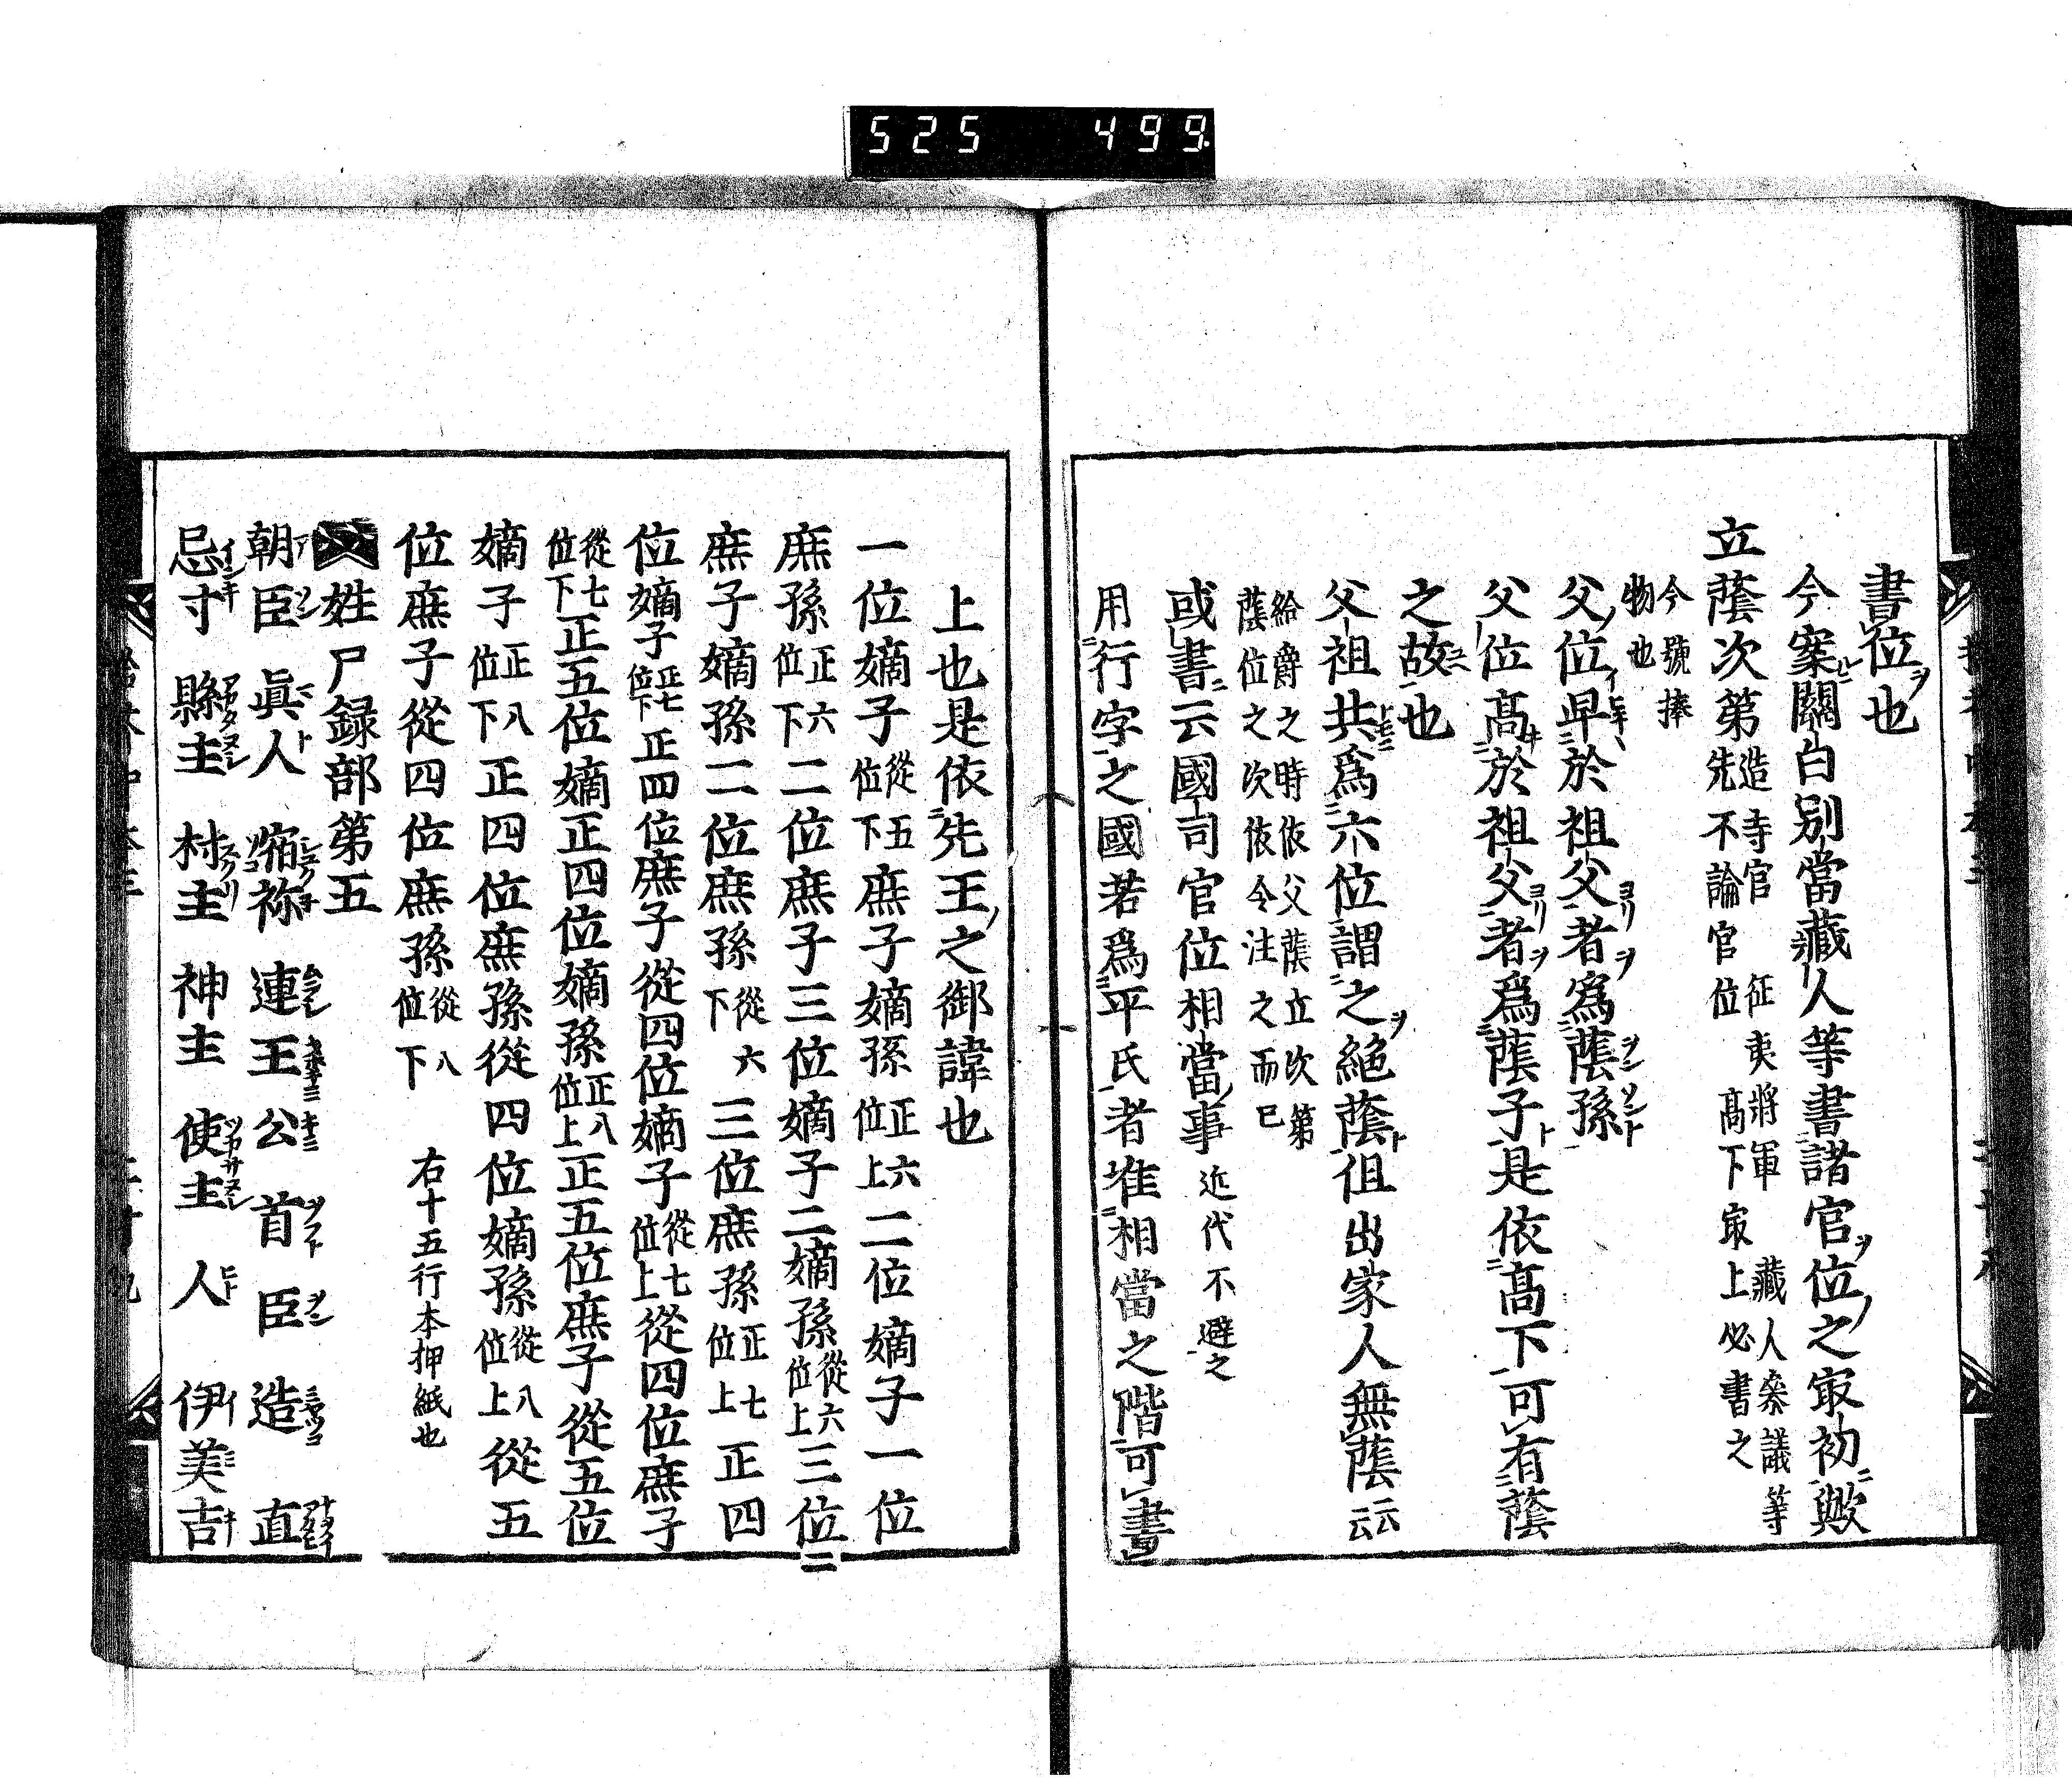 525 499
書位也
今案關白別當藏人等書諸官位之㝡初歟
立蔭次第 造寺官 征夷將軍 藏人叅議等
先不論官位 高下㝡上必書之
今號捧
物也
父位卑於祖父者爲蔭孫
父位髙於祖父者爲蔭子是依髙下可有蔭
之故也
父祖共爲六位謂之絕蔭但出家人無蔭云云
給爵之時依父蔭立次第
蔭位之次依令注之而已
或書云國司官位相當事 近代不避之
用行字之國若爲平氏者准相當之階可書
上也是依先王之御諱也
一位嫡子從五位下庶子嫡孫正六位上二位嫡子一位
庶孫正六位下二位庶子三位嫡子二嫡孫從六位上三位
庶子嫡孫二位庶孫從六下三位庶孫正七位上正四
位嫡子正七位下正四位庶子從四位嫡子從七位上從四位庶子
從七位下正五位嫡正四位嫡孫正八位上正五位庶子從五位
嫡子正八位下正四位庶孫從四位嫡孫從八位上從五
位庶子從四位庶孫從八位下 右十五行本押紙也
姓尸録部第五
朝臣 眞人 宿祢 連 王 公 首 臣 造 直
忌寸 縣主 村主 神主 使主 人 伊美吉